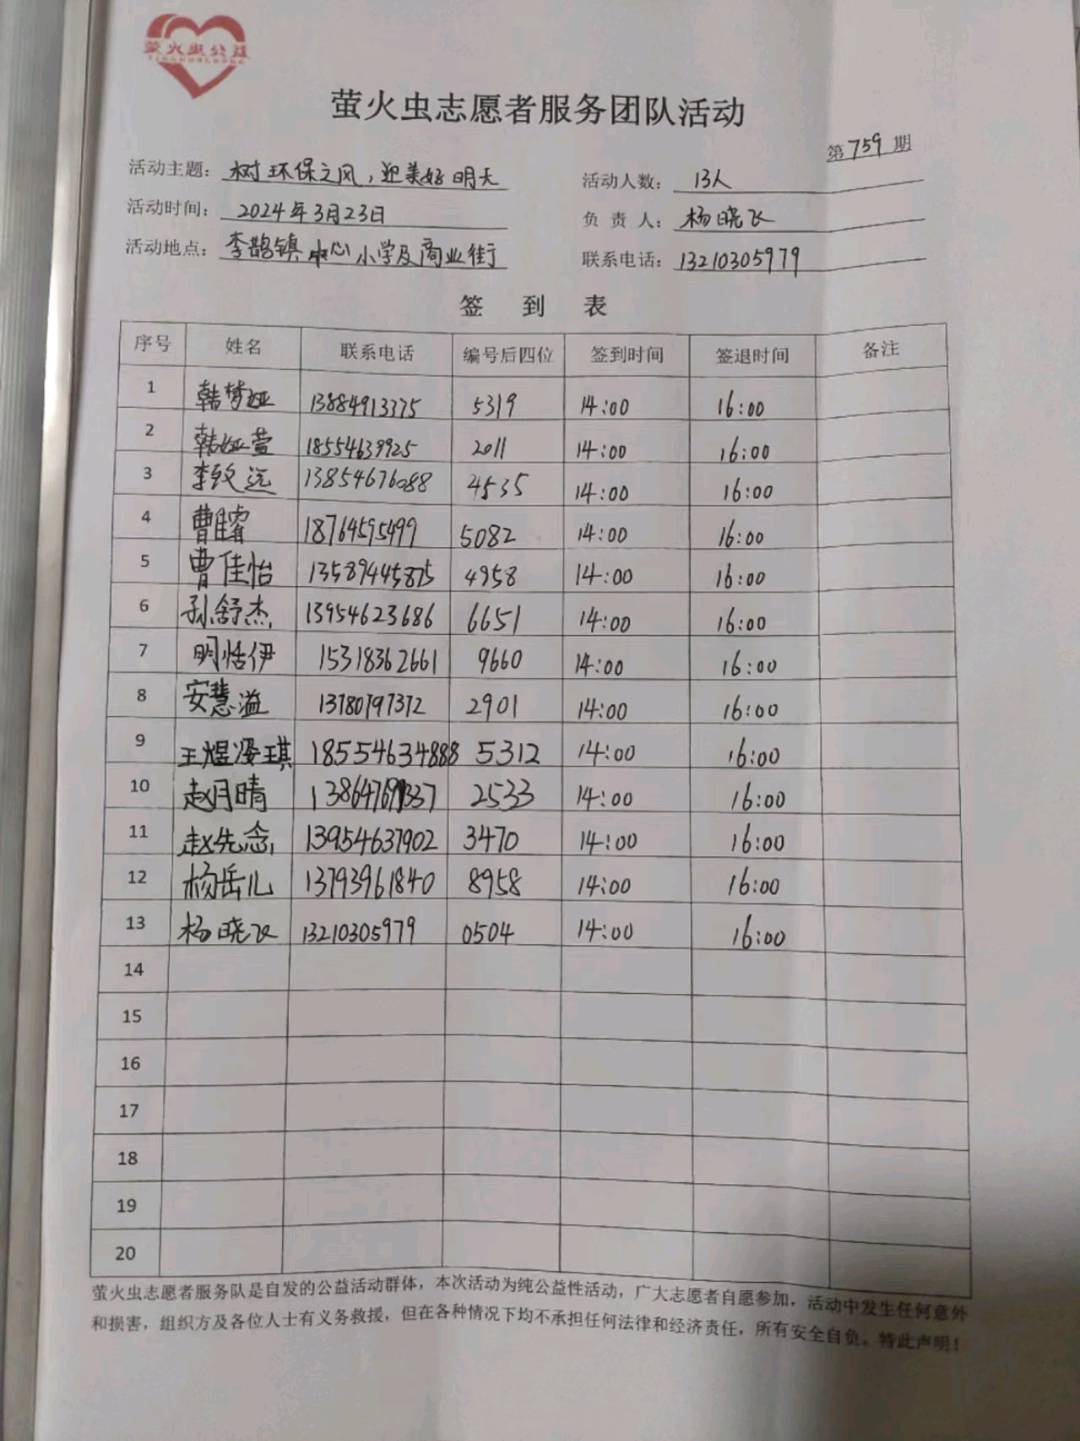 萤火虫公益
萤火虫志愿者服务团队活动
第759期
活动主题：树环保之风，迎美好明天 活动人数：13人
活动时间：2024年3月23日 负责人：杨晓飞
活动地点：李鹊镇中心小学及商业街 联系电话：13210305979
签到表
序号 姓名 联系电话 编号后四位 签到时间 签退时间 备注
1 韩梦娅 13884913375 5319 14:00 16:00
2 韩娅萱 18554639925 2011 14:00 16:00
3 李致远 13854676088 4535 14:00 16:00
4 曹睿 18764595499 5082 14:00 16:00
5 曹佳怡 13589445875 4958 14:00 16:00
6 孙舒杰 13954623686 6651 14:00 16:00
7 明恬伊 15318362661 9660 14:00 16:00
8 安慧溢 13780797372 2901 14:00 16:00
9 王煜凌琪 18554634888 5312 14:00 16:00
10 赵月晴 2533 14:00 16:00
11 赵先念 13954637902 3470 14:00 16:00
12 杨岳儿 13793961840 8958 14:00 16:00
13 杨晓飞 13210305979 0504 14:00 16:00
14
15
16
17
18
19
20
萤火虫志愿者服务队是自发的公益活动群体，本次活动为纯公益性活动，广大志愿者自愿参加，活动中发生任何意外
和损害，组织方及各位人士有义务救援，但在各种情况下均不承担任何法律和经济责任，所有安全自负。特此声明！